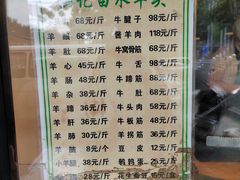 花苗水羊头
68元/斤 牛腱子 98元/斤
羊 68元/斤 酱羊肉 118元/斤
羊肚 68元/斤 牛窝骨筋 68元/斤
羊心 45元/斤 牛舌 98元/斤
羊肠 48元/斤 牛肚 55元/斤
羊杂 38元/斤 牛大肠 68元/斤
羊蹄 38元/斤 牛头肉 68元/斤
羊肝 36元/斤 牛板筋 48元/斤
羊肺 30元/斤 羊拐筋 36元/斤
羊脑 8元/个 豆皮 12元/斤
小羊腿 38元/斤 鹌鹑蛋 25元/斤
28元/斤 花生蚕豆 15元/盒